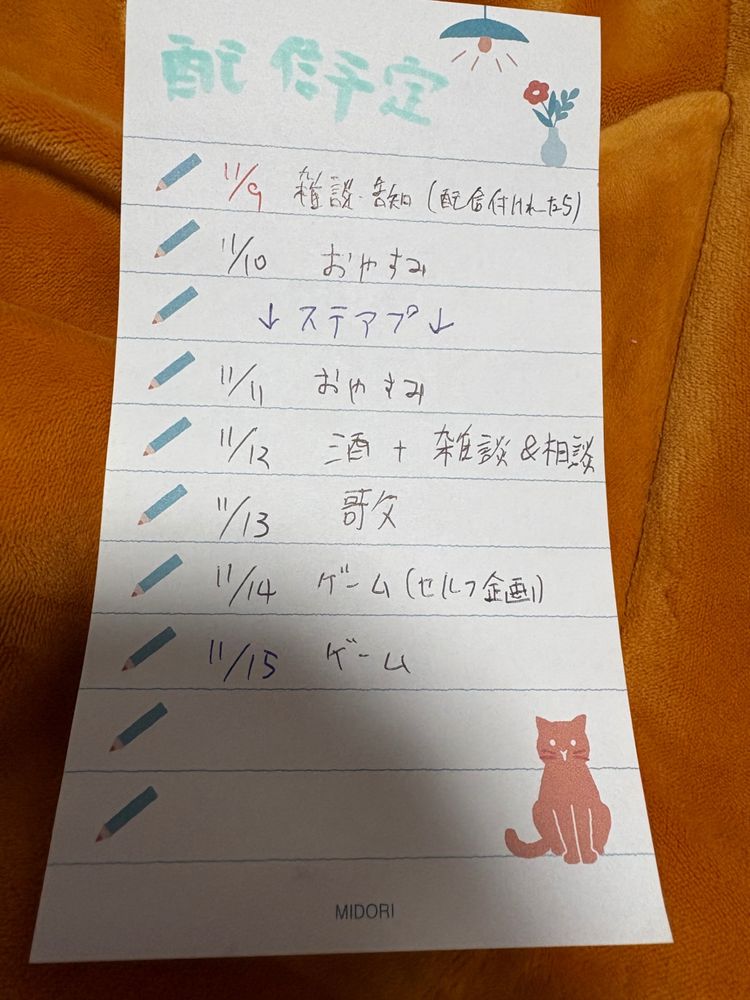 配信予定
11/9 雑談・告知(配信付けれたら)
11/10 おやすみ
↓ステアプ↓
11/11 おやすみ
11/12 酒 + 雑談&相談
11/13 歌
11/14 ゲーム(セルフ企画)
11/15 ゲーム
MIDORI